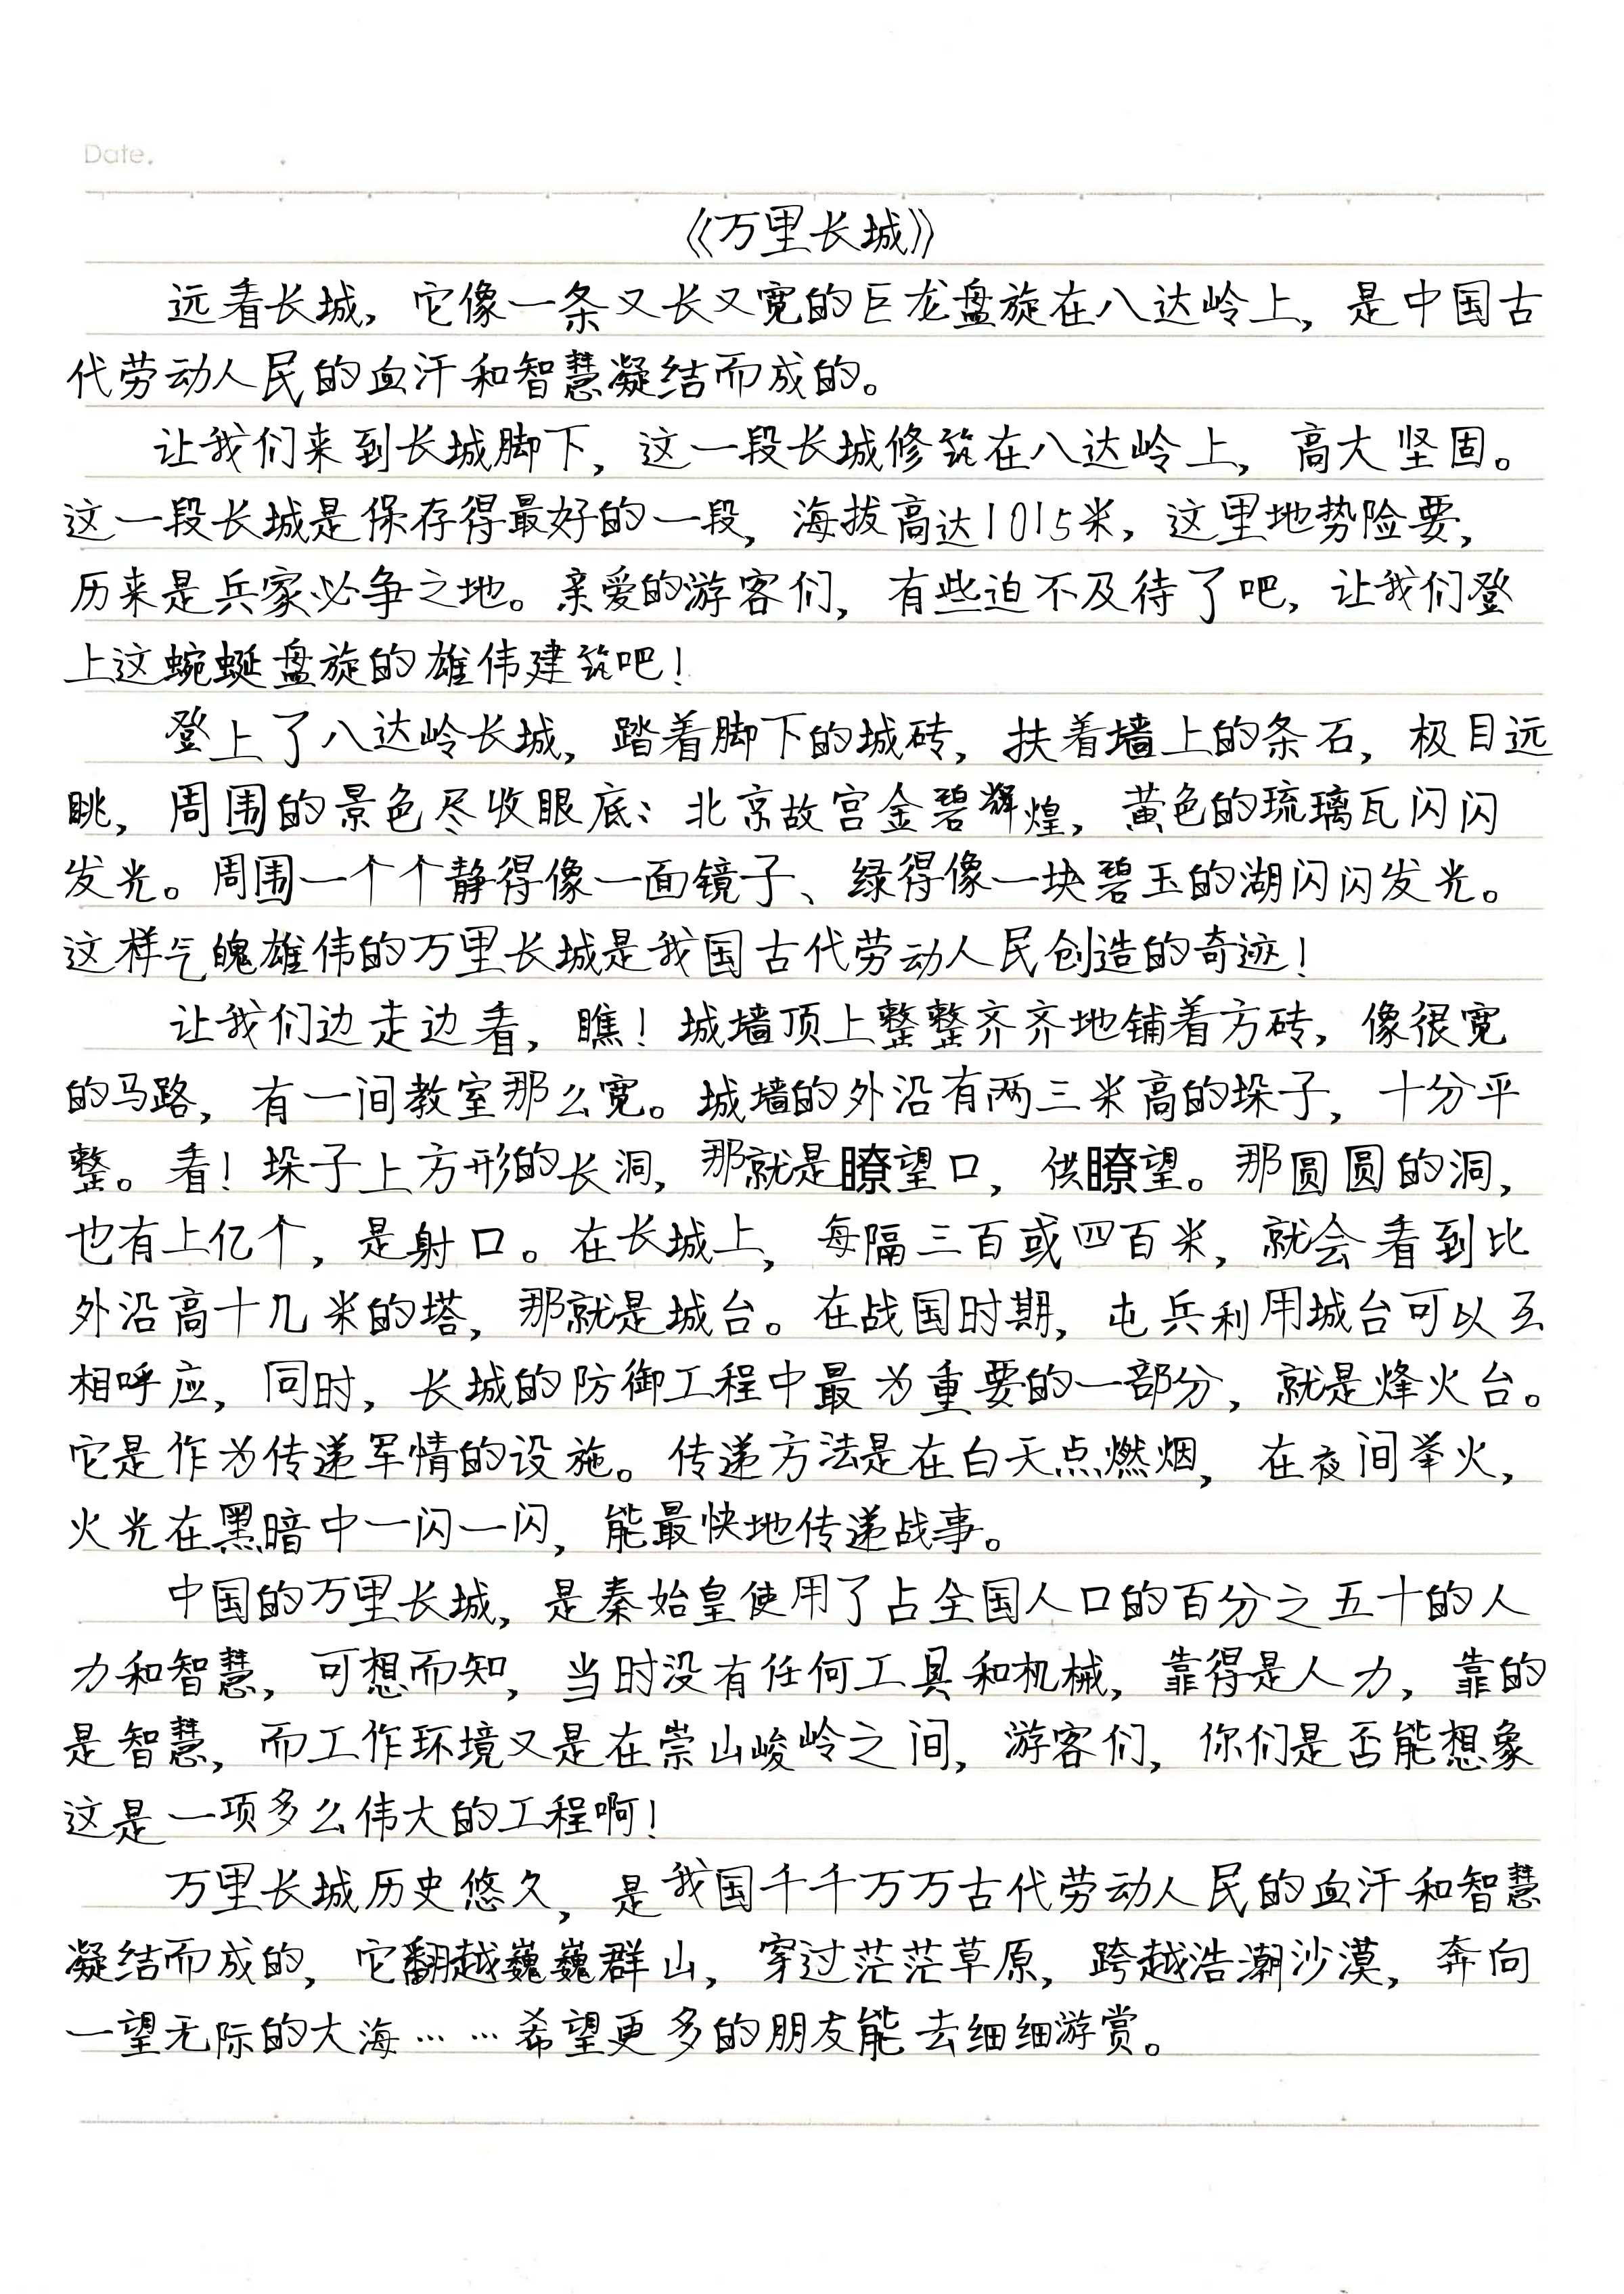 Date.
《万里长城》
远看长城，它像一条又长又宽的巨龙盘旋在八达岭上，是中国古
代劳动人民的血汗和智慧凝结而成的。
让我们来到长城脚下，这一段长城修筑在八达岭上，高大坚固。
这一段长城是保存得最好的一段，海拔高达1015米，这里地势险要，
历来是兵家必争之地。亲爱的游客们，有些迫不及待了吧，让我们登
上这蜿蜒盘旋的雄伟建筑吧！
登上了八达岭长城，踏着脚下的城砖，扶着墙上的条石，极目远
眺，周围的景色尽收眼底：北京故宫金碧辉煌，黄色的琉璃瓦闪闪
发光。周围一个个静得像一面镜子、绿得像一块碧玉的湖闪闪发光。
这样气魄雄伟的万里长城是我国古代劳动人民创造的奇迹！
让我们边走边看，瞧！城墙顶上整整齐齐地铺着方砖，像很宽
的马路，有一间教室那么宽。城墙的外沿有两三米高的垛子，十分平
整。看！垛子上方形的长洞，那就是瞭望口，供瞭望。那圆圆的洞，
也有上亿个，是射口。在长城上，每隔三百或四百米，就会看到比
外沿高十几米的塔，那就是城台。在战国时期，屯兵利用城台可以互
相呼应，同时，长城的防御工程中最为重要的一部分，就是烽火台。
它是作为传递军情的设施。传递方法是在白天点燃烟，在夜间举火，
火光在黑暗中一闪一闪，能最快地传递战事。
中国的万里长城，是秦始皇使用了占全国人口的百分之五十的人
力和智慧，可想而知，当时没有任何工具和机械，靠得是人力，靠的
是智慧，而工作环境又是在崇山峻岭之间，游客们，你们是否能想象
这是一项多么伟大的工程啊！
万里长城历史悠久，是我国千千万万古代劳动人民的血汗和智慧
凝结而成的，它翻越巍巍群山，穿过茫茫草原，跨越浩潮沙漠，奔向
一望无际的大海……希望更多的朋友能去细细游赏。